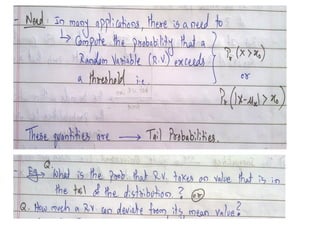 Need: In many applications, there is a need to
↳ Compute the probability that a
Random Variable (R.V) exceeds
a threshold i.e.
Pr (X > x₀)
or
Pr (|X-μx| > x₀)
These quantities are → Tail Probabilities.
Q.
Eg → What is the prob. that R.V. takes on value that is in
the tail of the distribution. ? or
Q. How much a R.V. can deviate from its mean value?